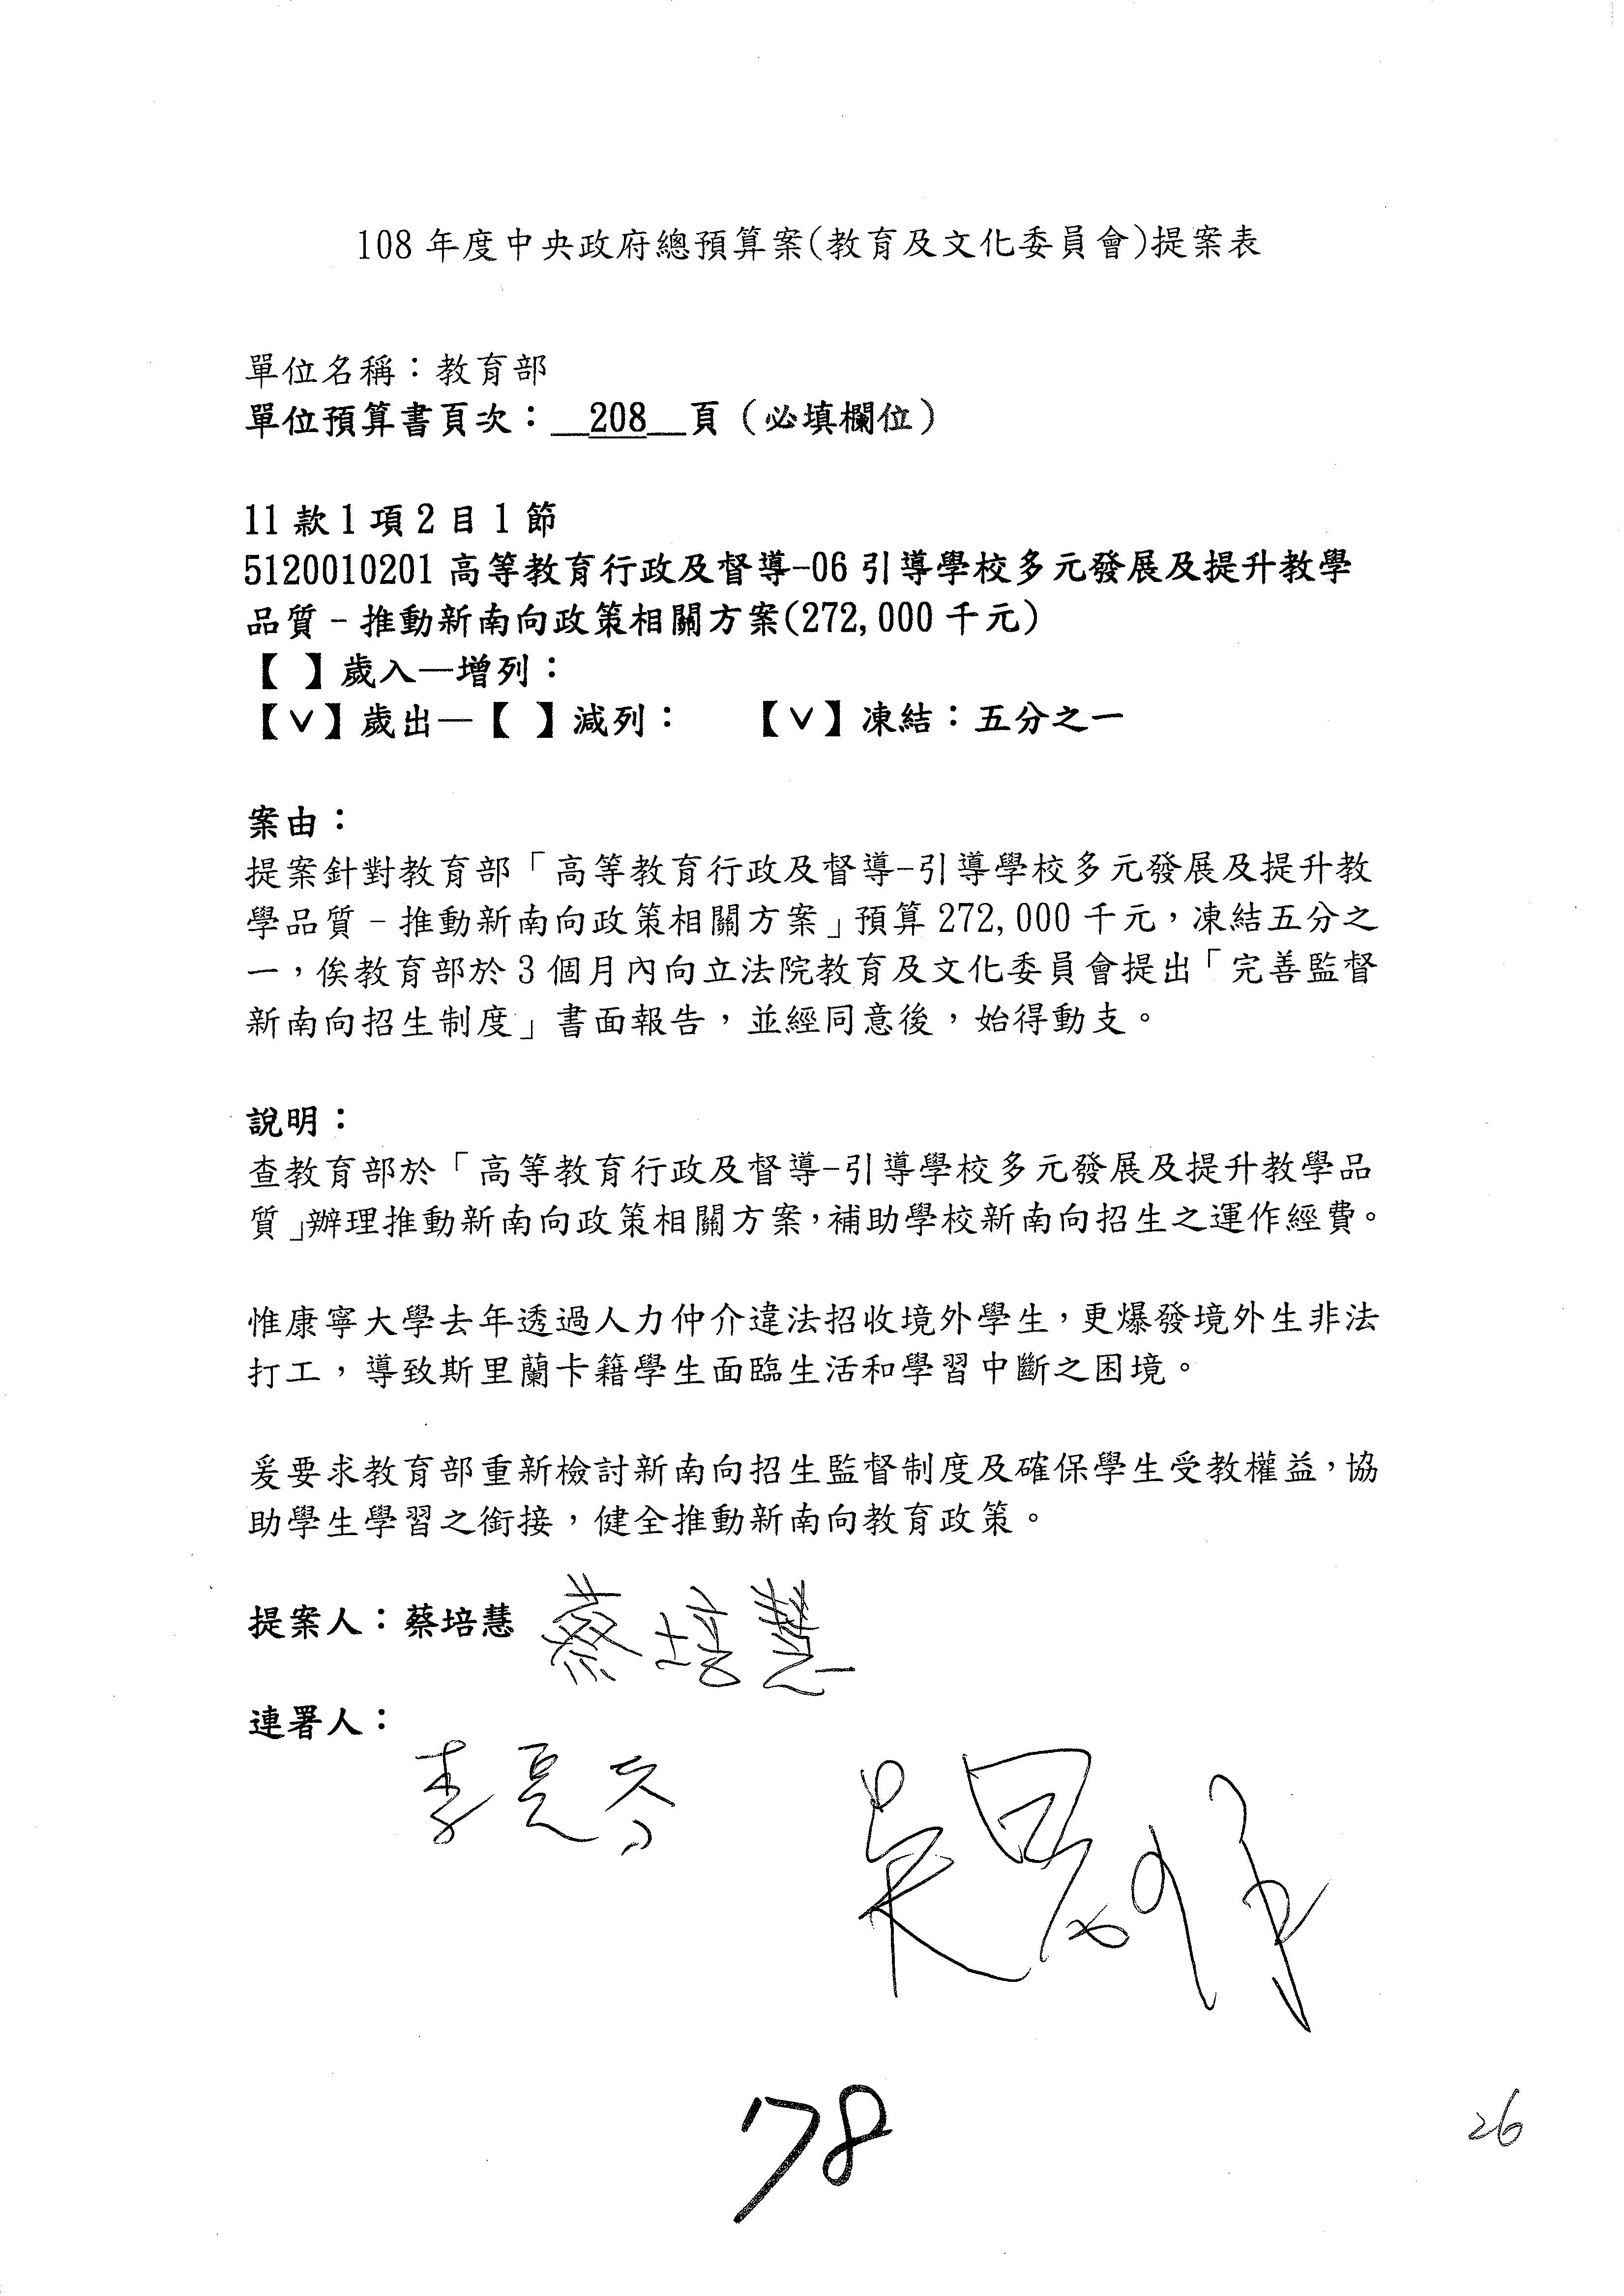 108 年度中央政府總預算案(教育及文化委員會)提案表
單位名稱：教育部
單位預算書頁次：__208__頁（必填欄位）
11 款 1 項 2 目 1 節
5120010201 高等教育行政及督導-06 引導學校多元發展及提升教學
品質－推動新南向政策相關方案(272,000 千元)
【 】歲入—增列：
【∨】歲出—【 】減列： 【∨】凍結：五分之一
案由：
提案針對教育部「高等教育行政及督導-引導學校多元發展及提升教
學品質－推動新南向政策相關方案」預算 272,000 千元，凍結五分之
一，俟教育部於 3 個月內向立法院教育及文化委員會提出「完善監督
新南向招生制度」書面報告，並經同意後，始得動支。
說明：
查教育部於「高等教育行政及督導-引導學校多元發展及提升教學品
質」辦理推動新南向政策相關方案，補助學校新南向招生之運作經費。
惟康寧大學去年透過人力仲介違法招收境外學生，更爆發境外生非法
打工，導致斯里蘭卡籍學生面臨生活和學習中斷之困境。
爰要求教育部重新檢討新南向招生監督制度及確保學生受教權益，協
助學生學習之銜接，健全推動新南向教育政策。
提案人：蔡培慧 蔡培慧
連署人：
78
26